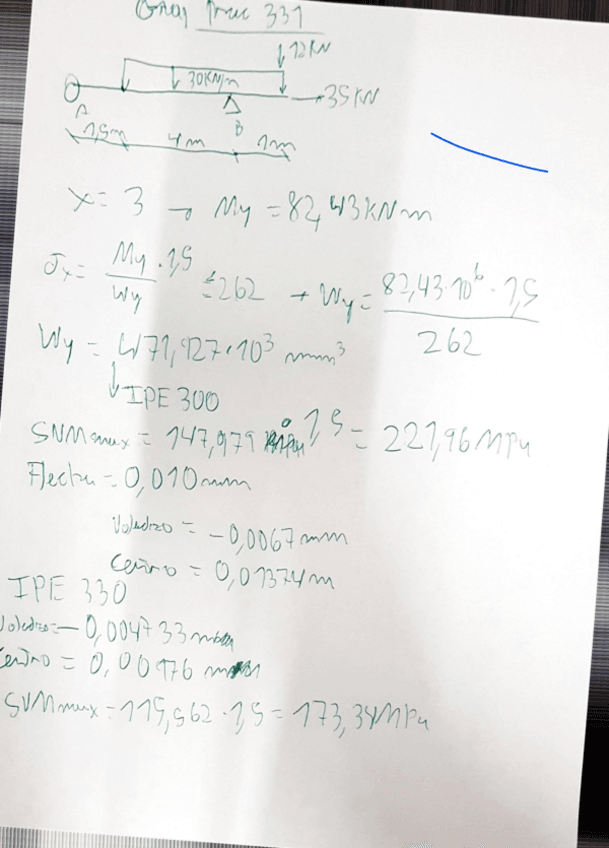 331
12KN
30KN/m
35KN
A
B
1,5m 4m 1m
x = 3 → My = 82,43kNm
σx = My · 1,5 / Wy ≤ 262 → Wy = 82,43·10⁶ · 1,5 / 262
Wy = 471,927·10³ mm³
↓ IPE 300
SVMmax = 147,979 · 1,5 = 221,96 MPa
Flecha = 0,010mm
Voladizo = -0,0067mm
Centro = 0,01374m
IPE 330
Voladizo = -0,004733
Centro = 0,00976
SVMmax = 115,562 · 1,5 = 173,34MPa